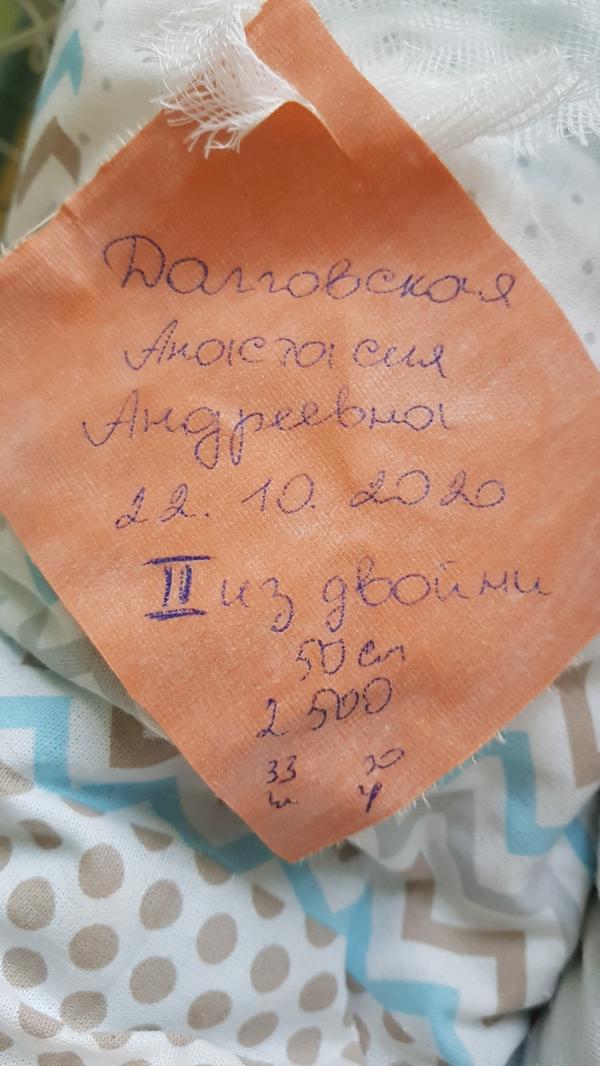 Далговская
Анастасия
Андреевна
22. 10. 2020
II из двойни
50 см
2 500
33 30